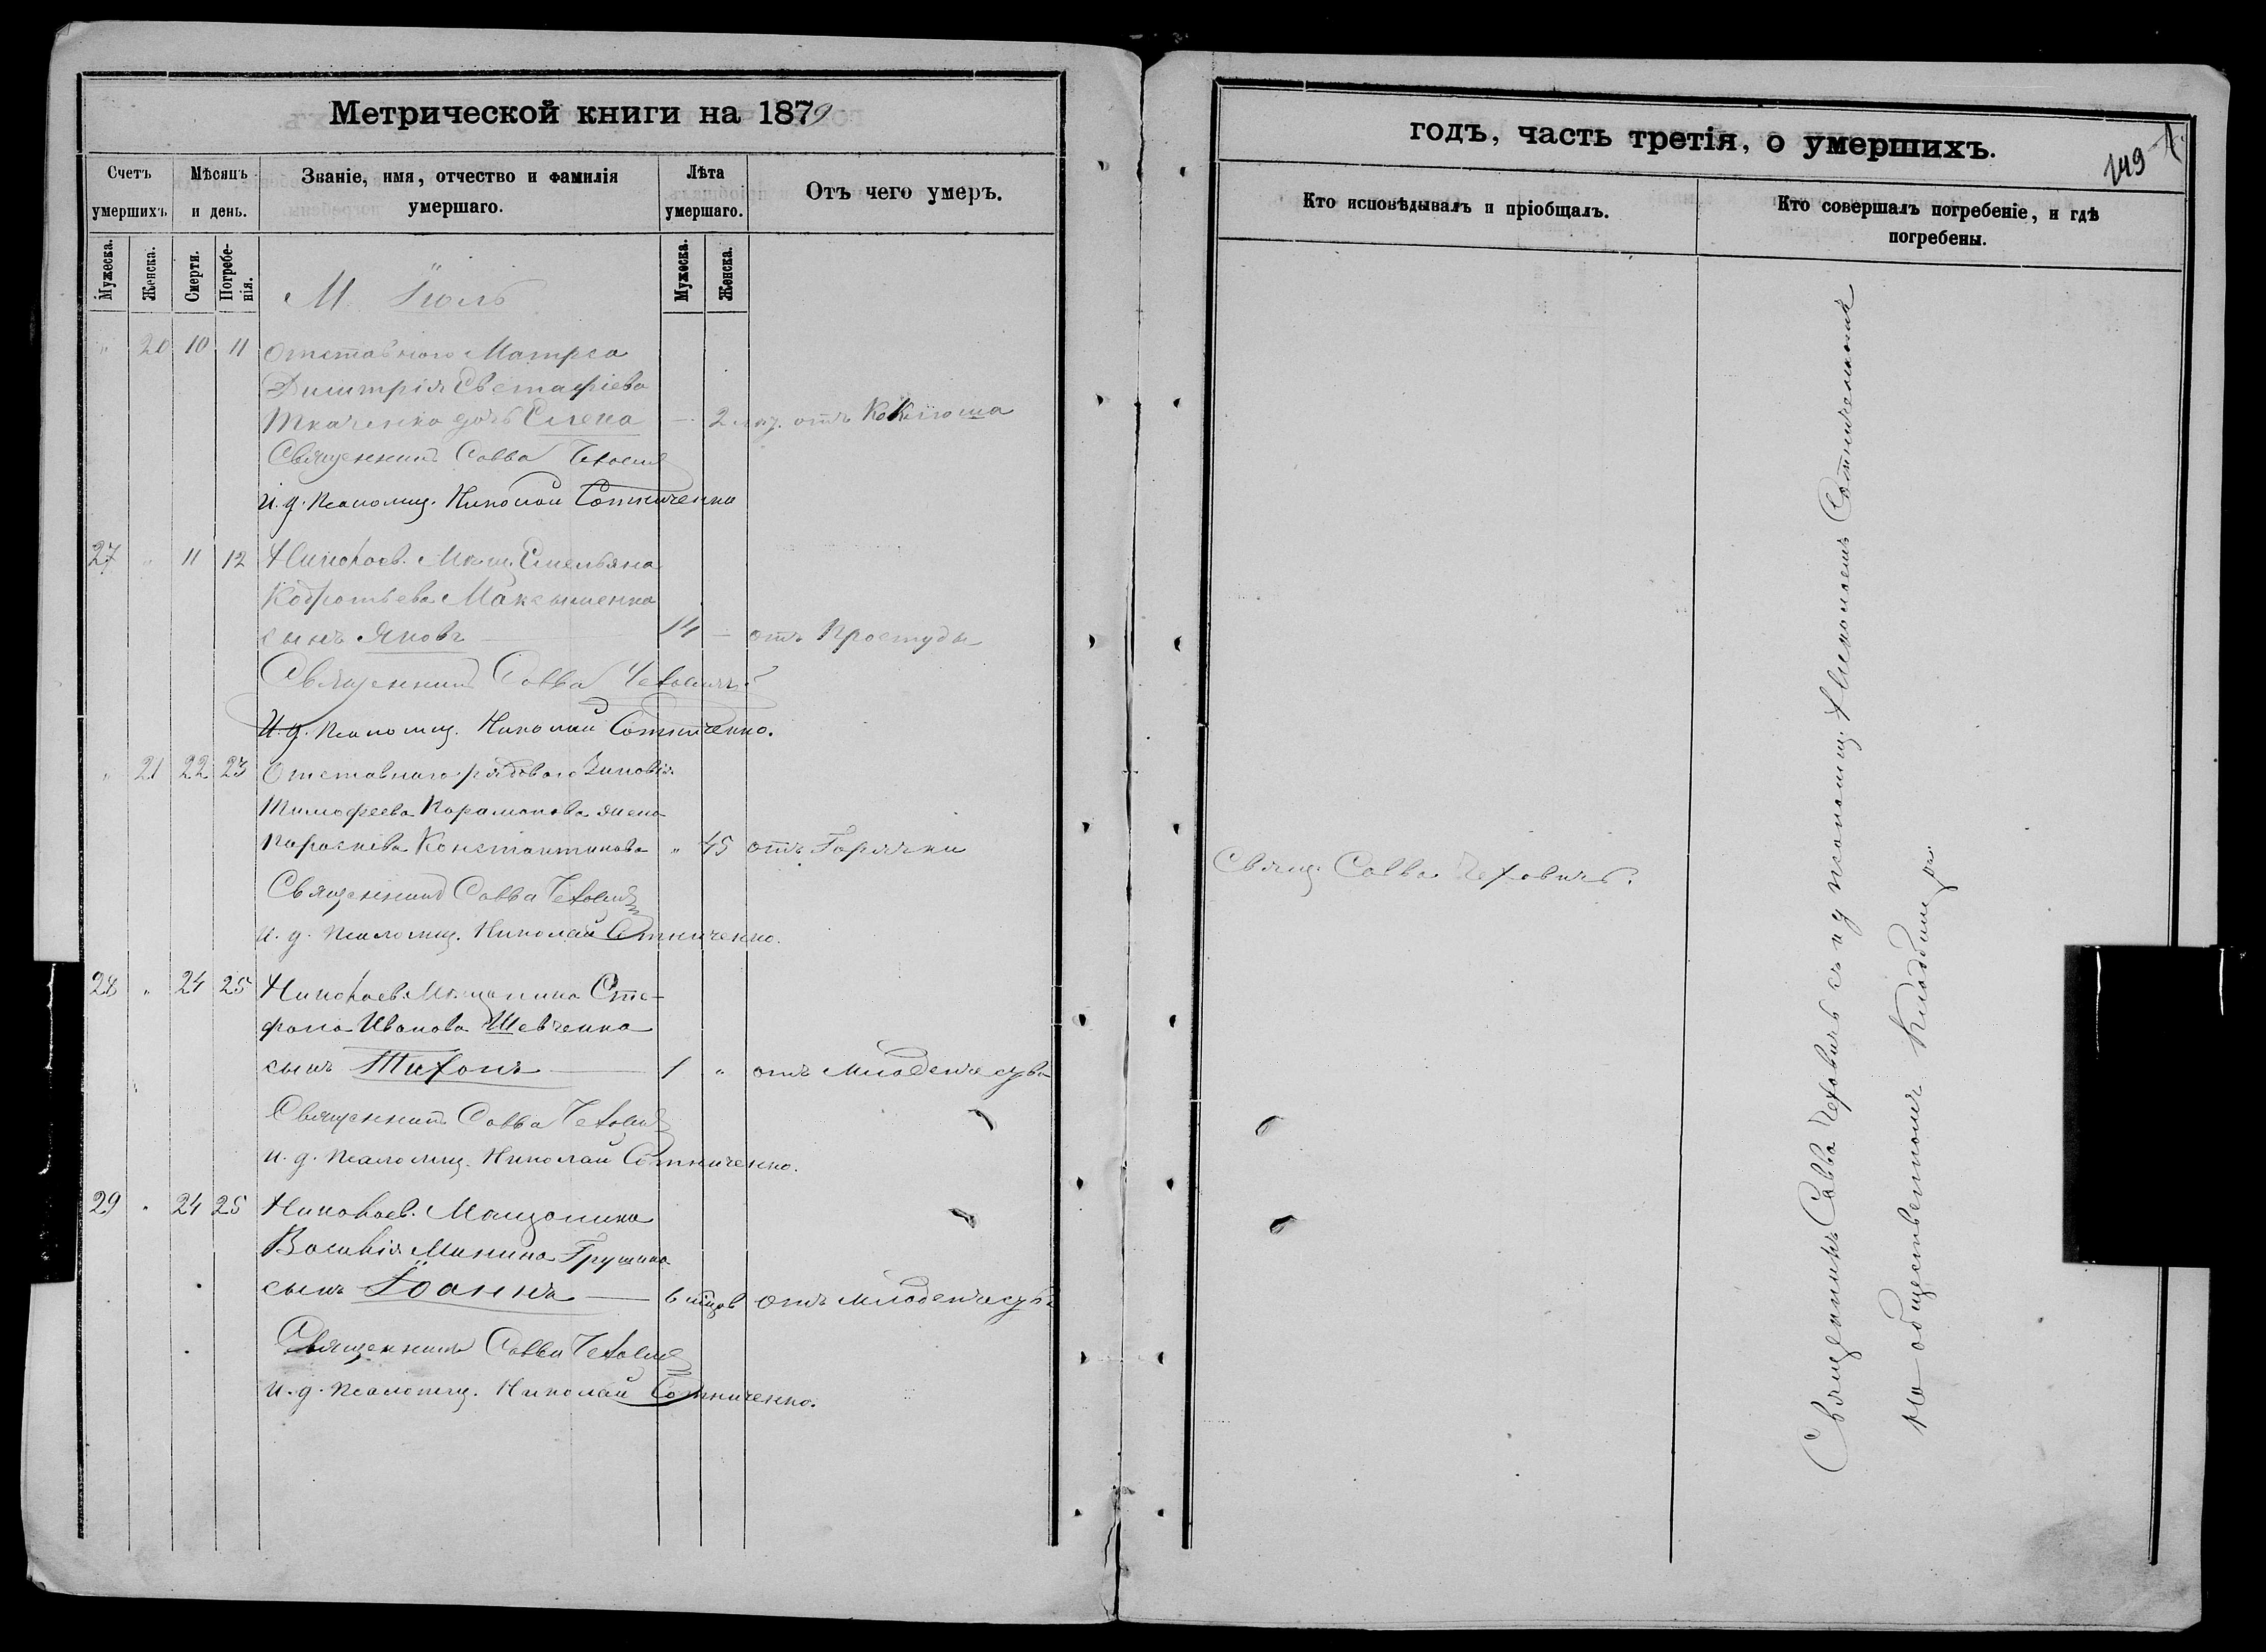 Метрической книги на 1879
Счетъ умершихъ
Мѣсяцъ и день.
Званіе, имя, отчество и фамилія умершаго.
Лѣта умершаго.
Отъ чего умеръ.
Мужеска.
Женска.
Смерти.
Погребе-
нія.
Мужеска.
Женска.
М. Іюль
" 20 10 11 Отставного Матроса
Димитрія Евстафіева
Ткаченка дочь Елена — 2 отъ Коклюша
Священникъ Савва Чехович
И. д. Псаломщ. Николай Сотниченко
27 " 11 12 Николаев. Мѣщ. Емельяна
Кодратьева Максименка
сынъ Яковъ 14 — отъ Простуды
Священникъ Савва Чеховичъ
И. д. Псаломщ. Николай Сотниченко.
" 21 22 23 Отставного рядового Зиновія
Тимофеева Парамонова жена
Параскева Константинова " 45 отъ Горячки
Священникъ Савва Чехович
И. д. Псаломщ. Николай Сотниченко.
28 " 24 25 Николаев. Мѣщанина Сте-
фана Иванова Шевченка
сынъ Тихонъ — 1 " отъ младенчества
Священникъ Савва Чехович
И. д. Псаломщ. Николай Сотниченко.
29 " 24 25 Николаев. Мѣщанина
Василія Минина Грушина
сынъ Іоаннъ — 6 мцов отъ младенчества
Священникъ Савва Чехович
И. д. Псаломщ. Николай Сотниченко.
годъ, часть третія, о умершихъ.
149
Кто исповѣдывалъ и пріобщалъ.
Кто совершалъ погребеніе, и гдѣ
погребены.
Свящ. Савва Чеховичъ.
Священникъ Савва Чеховичъ съ и д псаломщ. Николаемъ Сотниченкомъ
на общественномъ Кладбищѣ.